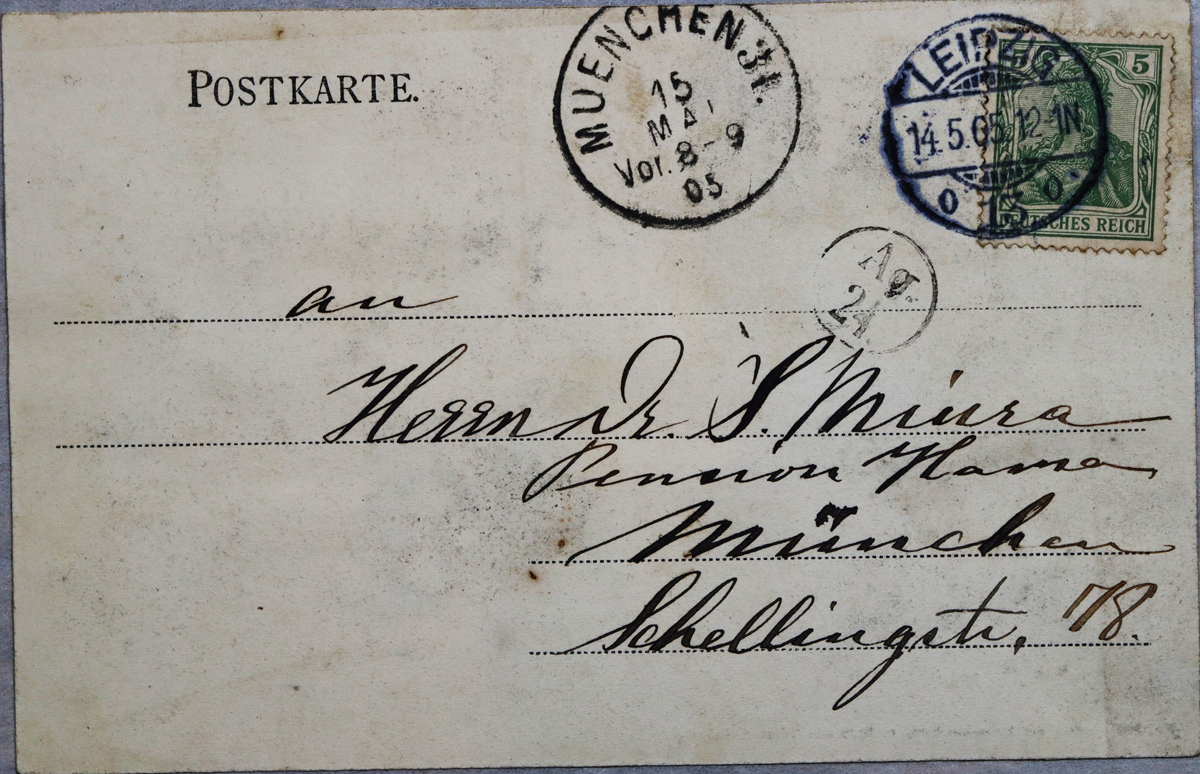 POSTKARTE.
MUENCHEN 31.
15
MAI
Vor. 8-9
05
LEIPZIG
14.5.05.12-1N
13
5
DEUTSCHES REICH
Ag.
24.
an
Herrn Dr. S. Miura
Pension Hama
München
Schellingstr. 78.